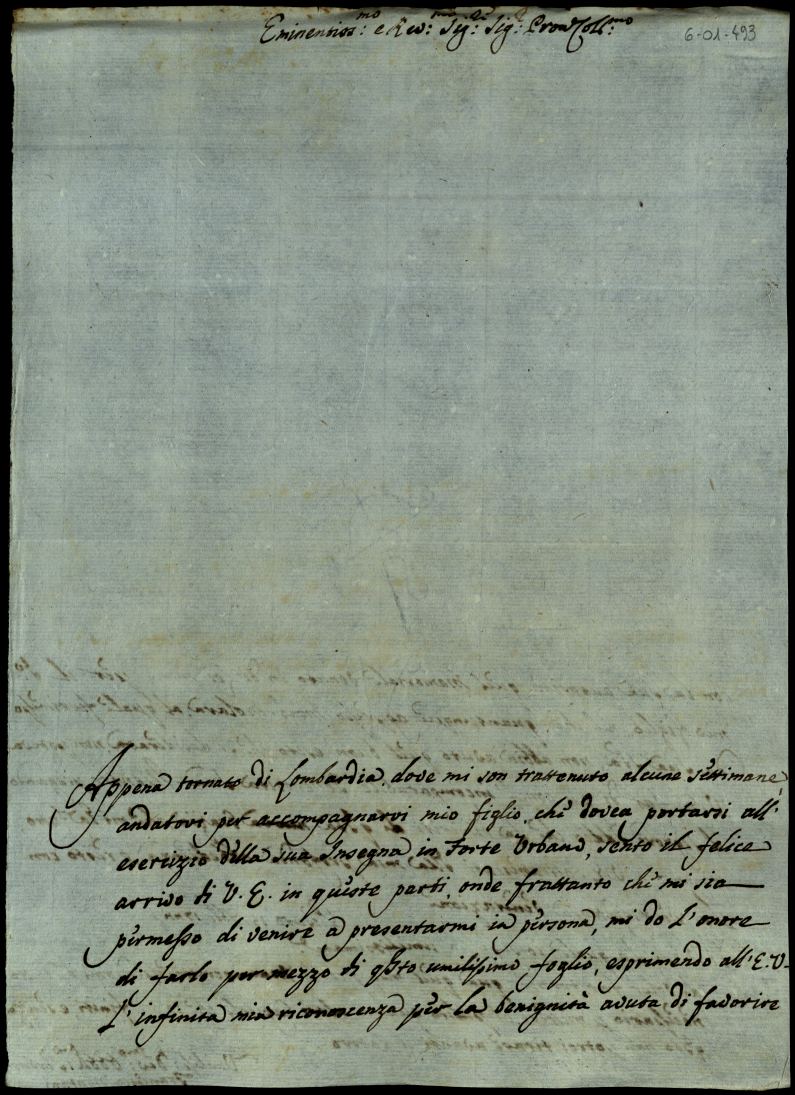 Eminentiss:mo e Rev:mo Sig:re Sig:re Pron Coll:mo
6-01-493
Appena tornato di Lombardia, dove mi son trattenuto alcune settimane,
andatovi per accompagnarvi mio figlio, che dovea portarsi all'
esercizio della sua Insegna, in Forte Urbano, sento il felice
arrivo di V. E. in queste parti, onde frattanto che mi sia
permesso di venire a presentarmi in persona, mi do l'onore
di farlo per mezzo di qsto umilissimo foglio, esprimendo all'E. V.
l'infinita mia riconoscenza per la benignità avuta di favorire